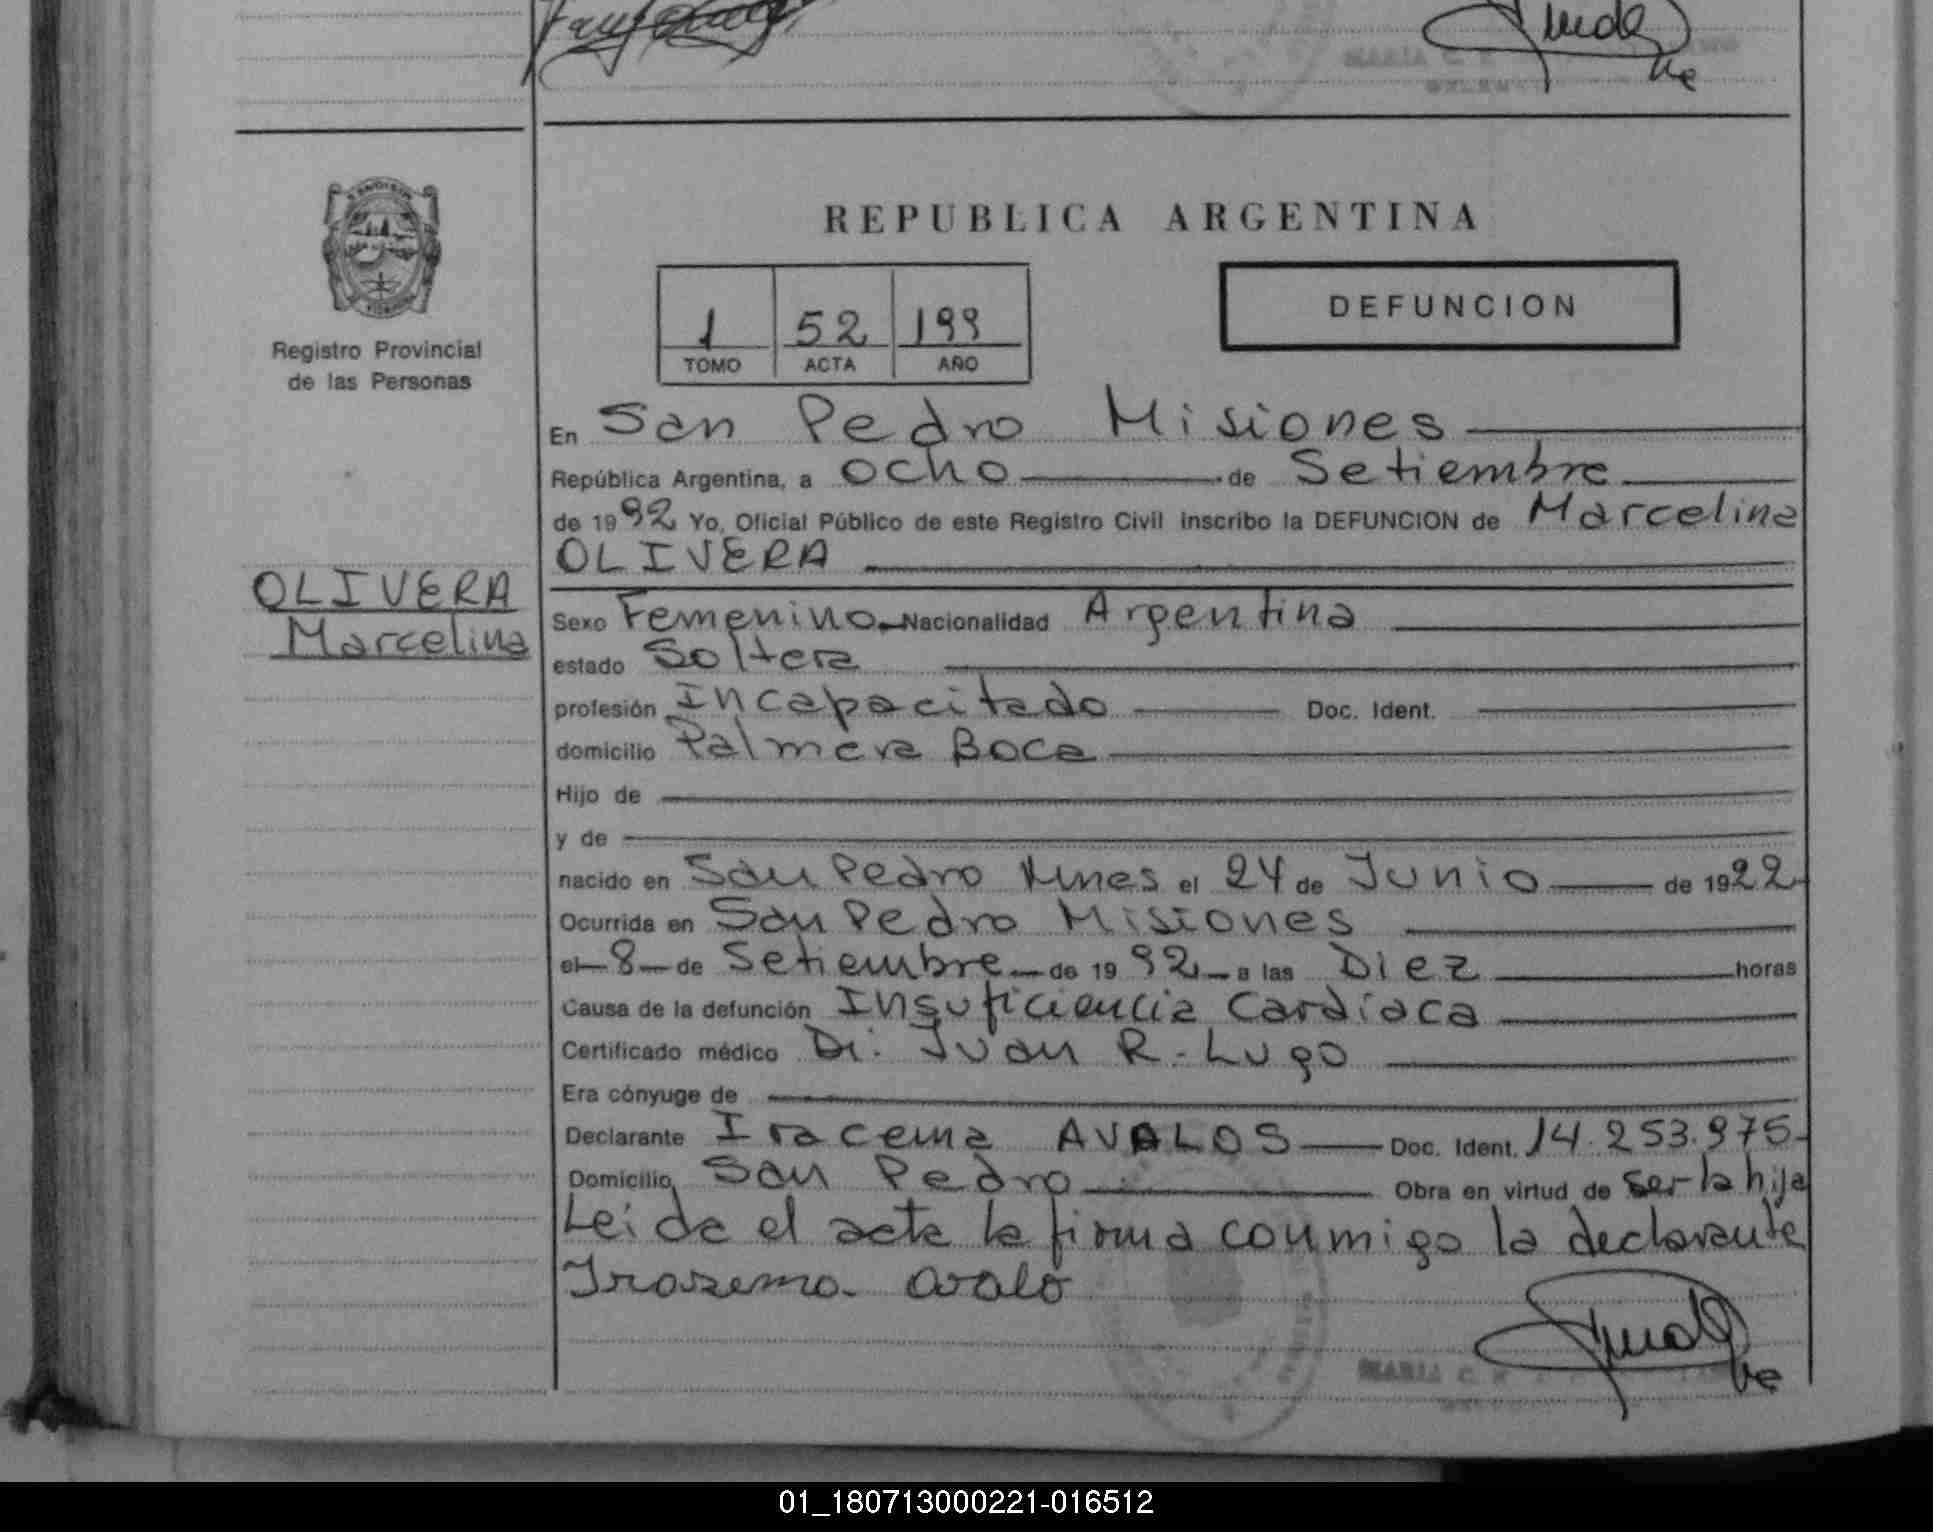 REPUBLICA ARGENTINA
Registro Provincial
de las Personas
1 52 199
TOMO ACTA AÑO
DEFUNCION
En San Pedro Misiones
República Argentina, a ocho de Setiembre
de 1992 Yo, Oficial Público de este Registro Civil inscribo la DEFUNCION de Marcelina
OLIVERA
OLIVERA
Marcelina
Sexo Femenino Nacionalidad Argentina
estado Soltera
profesión Incapacitado Doc. Ident.
domicilio Palmera Boca
Hijo de
y de
nacido en San Pedro Mnes el 24 de Junio de 1922
Ocurrida en San Pedro Misiones
el 8 de Setiembre de 1992 a las Diez horas
Causa de la defunción Insuficiencia Cardíaca
Certificado médico Dr. Juan R. Lugo
Era cónyuge de
Declarante Iracema AVALOS Doc. Ident. 14.253.975
Domicilio San Pedro Obra en virtud de ser la hija
Leida el acta la firma conmigo la declarante
Irasema avalo
MARIA C.
01_180713000221-016512